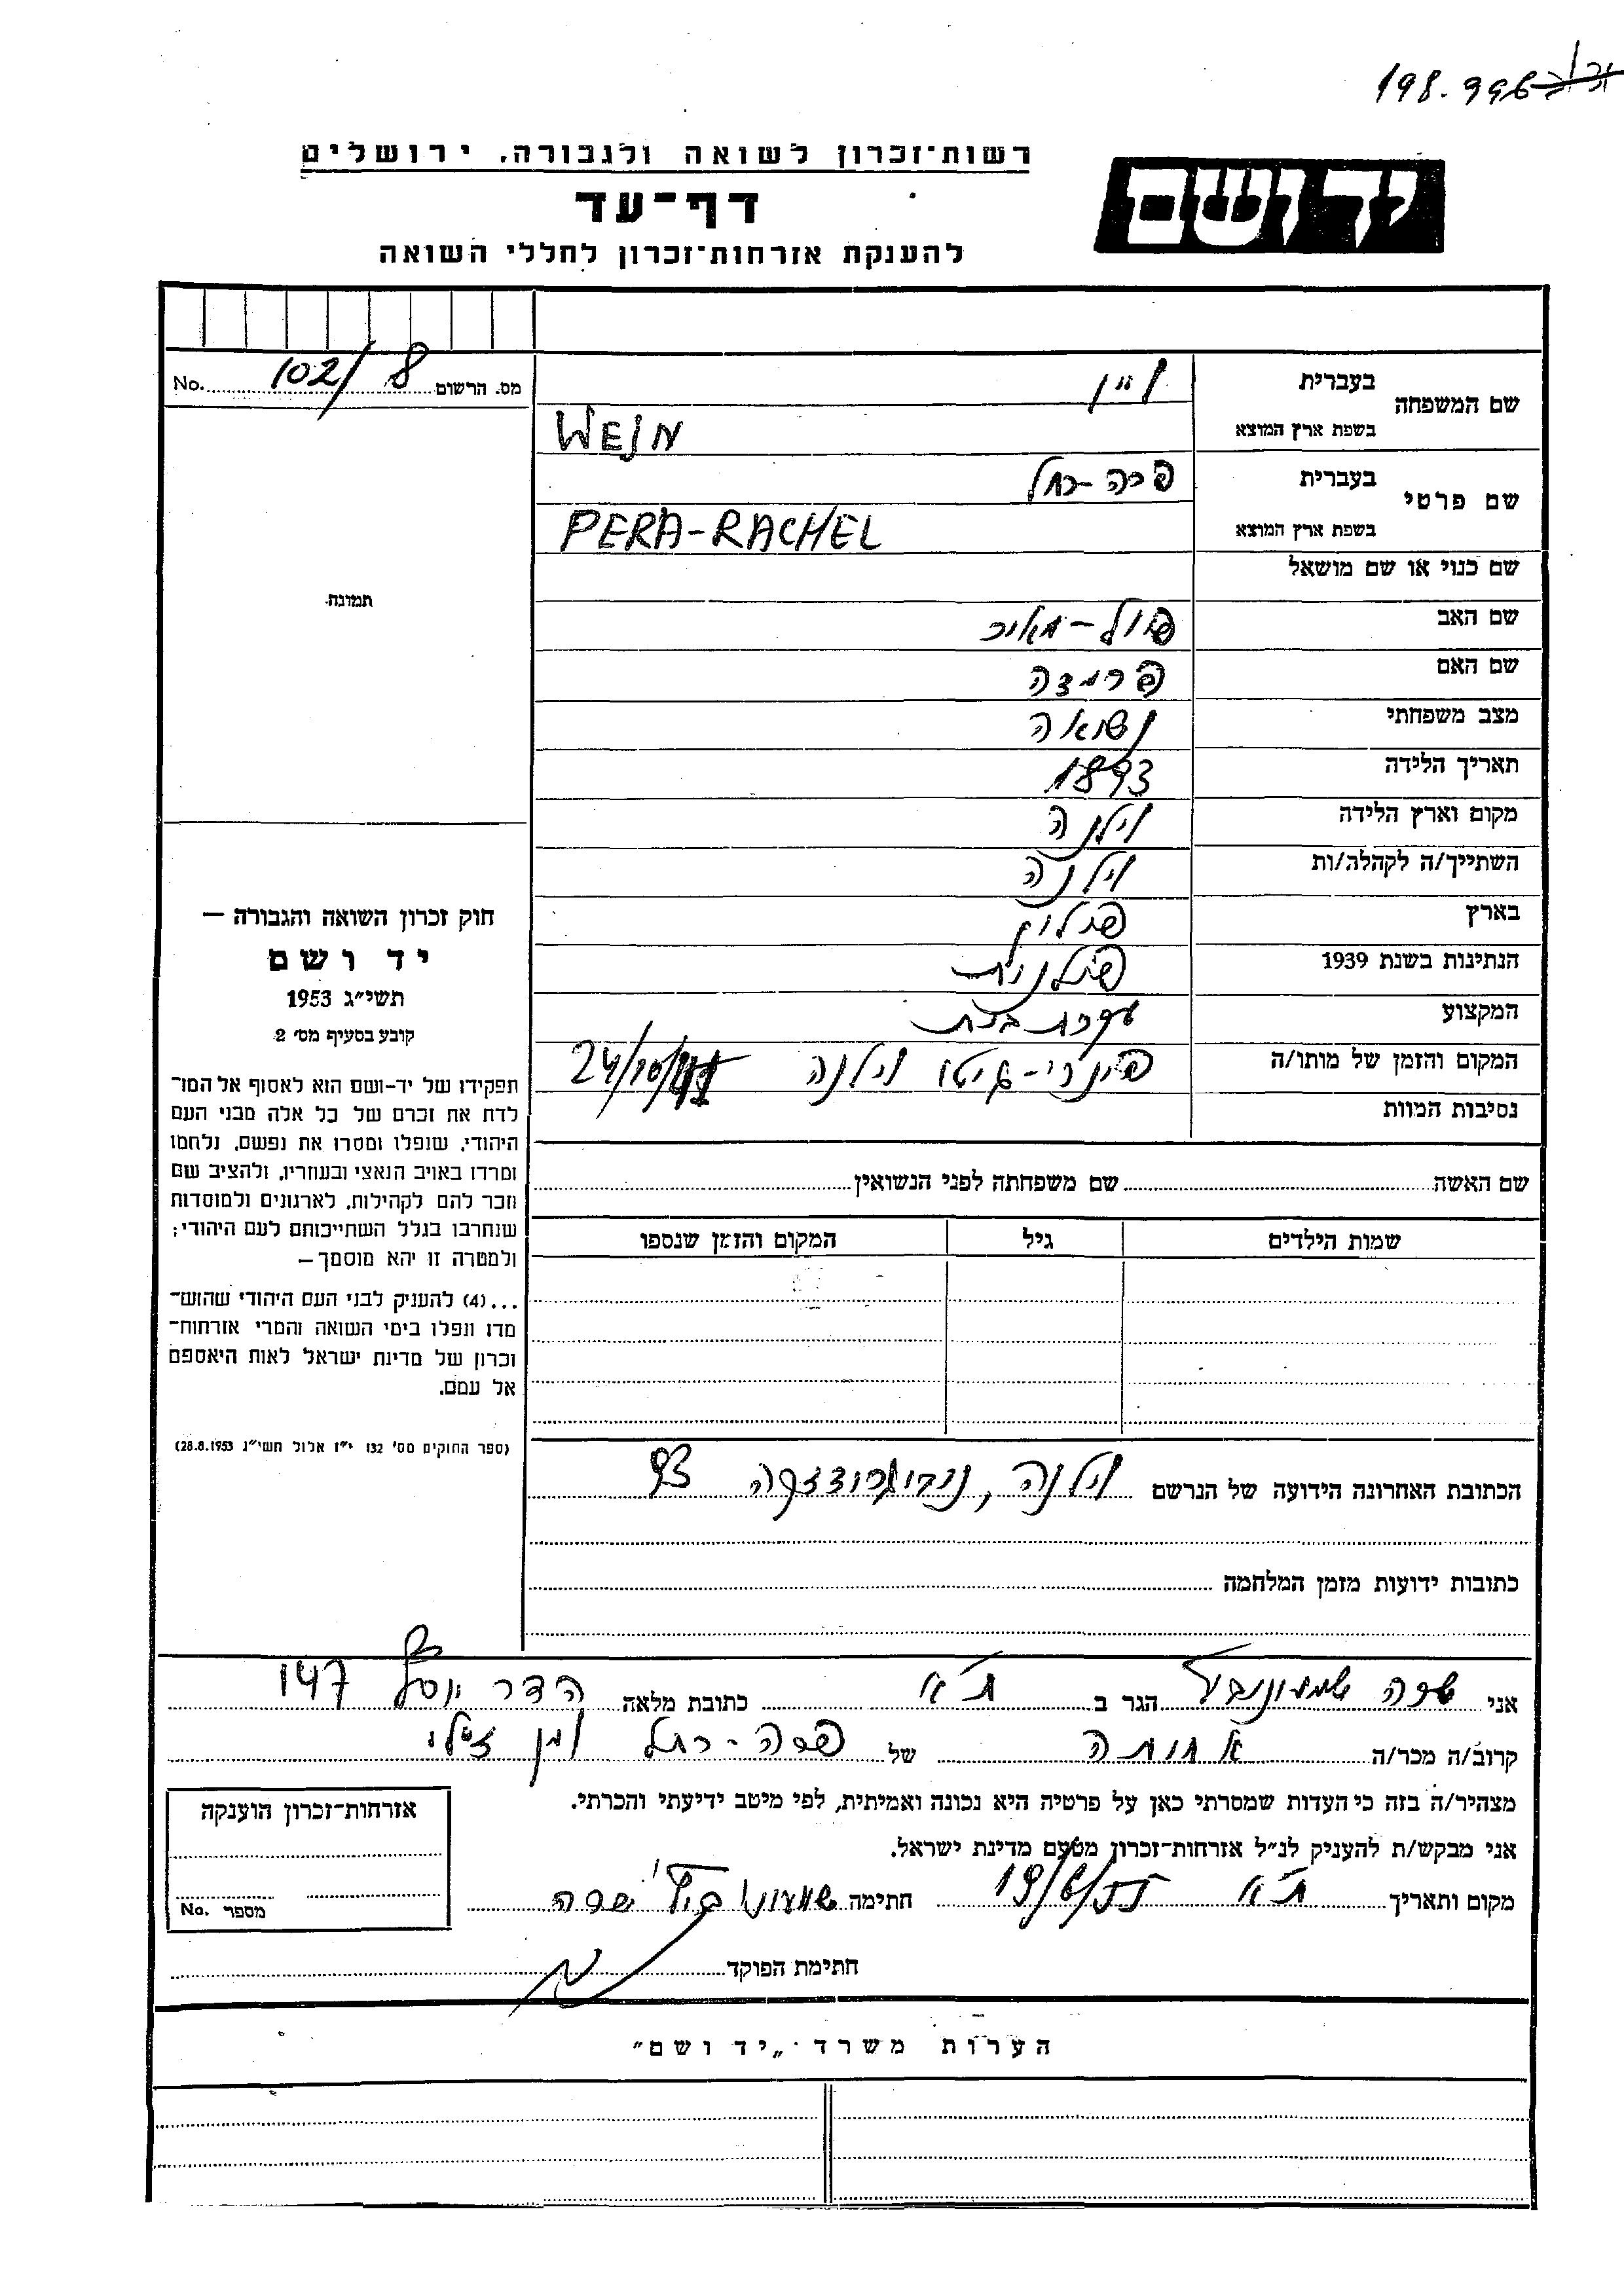 198.996
רשות־זכרון לשואה ולגבורה, ירושלים
יד ושם
דף־עד
להענקת אזרחות־זכרון לחללי השואה
מס. הרשום 102/8 No.
שם המשפחה בעברית וויין
בשפת ארץ המוצא WEJN
שם פרטי בעברית פרה-רחל
בשפת ארץ המוצא PERA-RACHEL
תמונה
שם כנוי או שם מושאל
שם האב מאיר
שם האם
מצב משפחתי נשואה
תאריך הלידה 1893
מקום וארץ הלידה וילנה
השתייך/ה לקהלה/ות וילנה
בארץ פולין
הנתינות בשנת 1939 פולנית
המקצוע עקרת בית
המקום והזמן של מותו/ה גיטו וילנה 24/10/
נסיבות המוות
שם האשה שם משפחתה לפני הנשואין
שמות הילדים גיל המקום והזמן שנספו
חוק זכרון השואה והגבורה —
יד ושם
תשי״ג 1953
קובע בסעיף מס׳ 2
תפקידו של יד-ושם הוא לאסוף אל המו־
לדת את זכרם של כל אלה מבני העם
היהודי, שנפלו ומסרו את נפשם, נלחמו
ומרדו באויב הנאצי ובעוזריו, ולהציב שם
וזכר להם לקהילות, לארגונים ולמוסדות
שנחרבו בגלל השתייכותם לעם היהודי;
ולמטרה זו יהא מוסמך —
...(4) להעניק לבני העם היהודי שהוש־
מדו ונפלו בימי השואה והמרי אזרחות־
זכרון של מדינת ישראל לאות היאספם
אל עמם.
(ספר החוקים מס׳ 132 י״ז אלול תשי״ג 28.8.1953)
הכתובת האחרונה הידועה של הנרשם וילנה, 93
כתובות ידועות מזמן המלחמה
אני שרה הגר ב ת"א כתובת מלאה הדר יוסף 147
קרוב/ה מכר/ה אחותה של פרה-רחל וין ז"ל
מצהיר/ה בזה כי העדות שמסרתי כאן על פרטיה היא נכונה ואמיתית, לפי מיטב ידיעתי והכרתי.
אני מבקש/ת להעניק לנ״ל אזרחות־זכרון מטעם מדינת ישראל.
מקום ותאריך ת"א 19/6/55 חתימה שרה
חתימת הפוקד
אזרחות־זכרון הוענקה
מספר No.
הערות משרד „יד ושם"